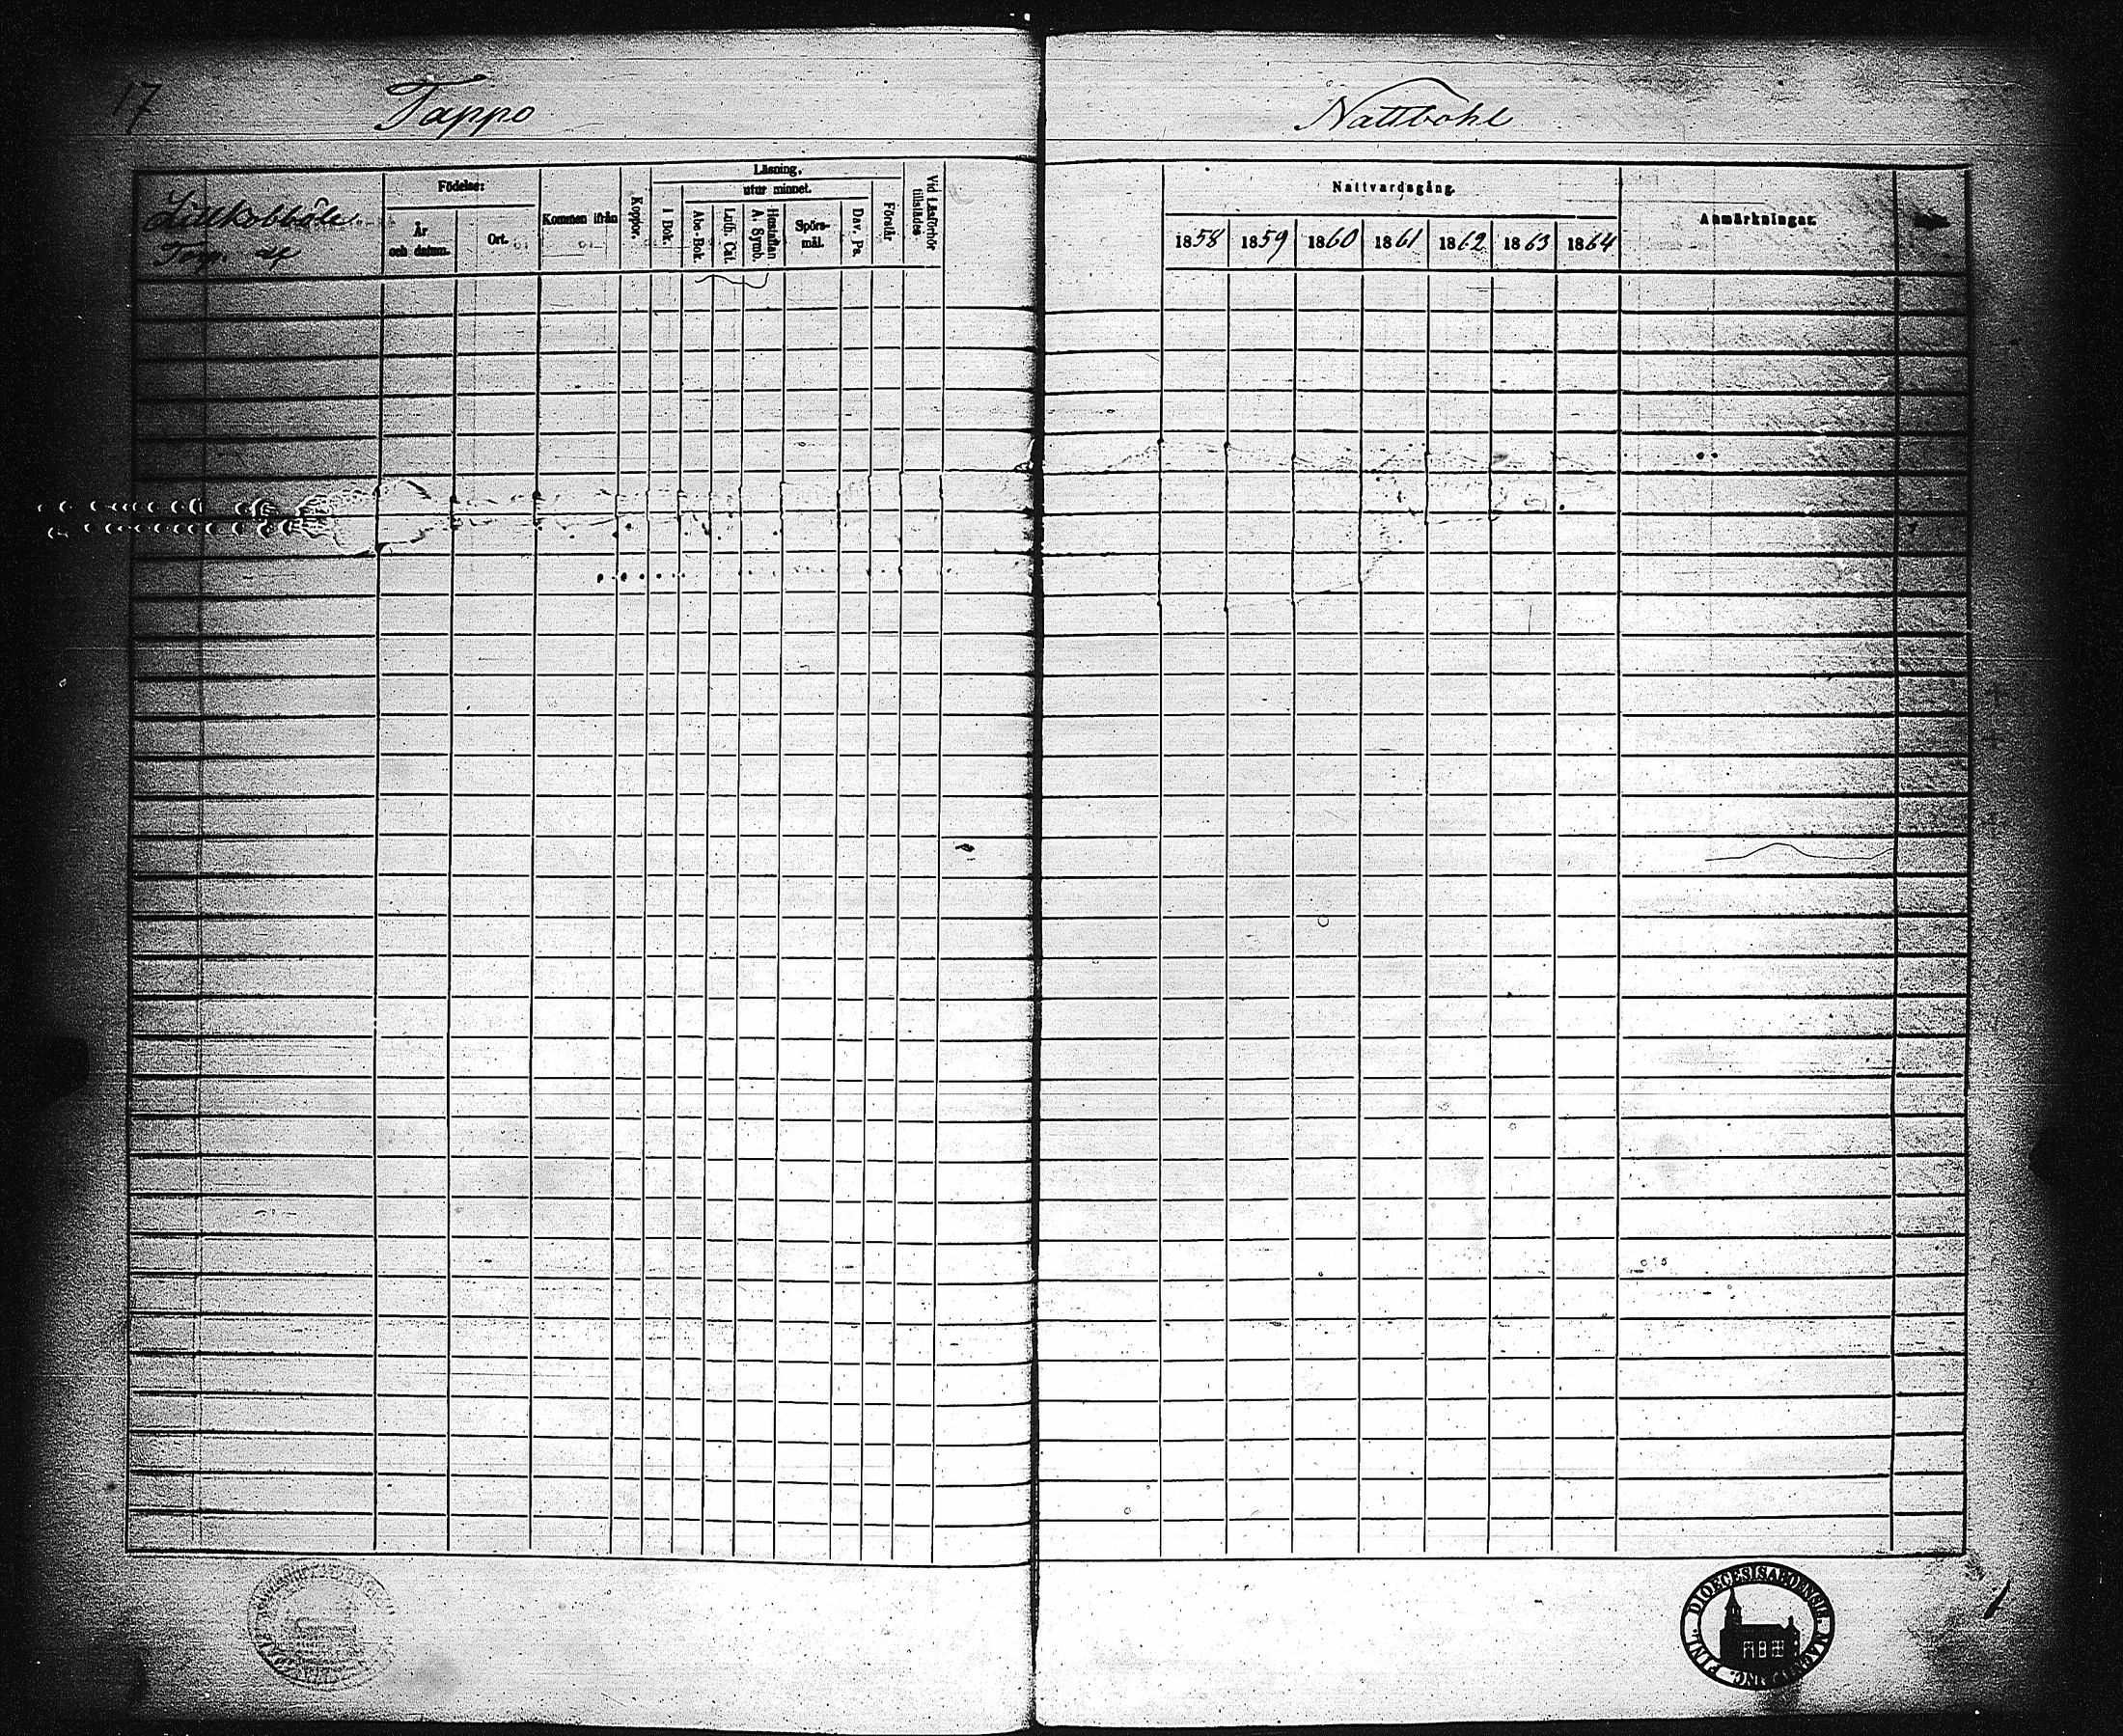 17
Tappo
Nattbohl
Lillkobbåle
Torp.
Födelse:
År och datum.
Ort.
Kommen ifrån
Koppor.
Läsning,
utur minnet.
I Bok.
Abc-Bok.
Luth. Cat.
Hustaflan A. Symb.
Spörs-mål.
Dav. Ps.
Förstår
Vid Läsförhör tillstädes
Nattvardsgång.
1858 1859 1860 1861 1862 1863 1864
Anmärkningar.
DIOECESIS ABOENSIS